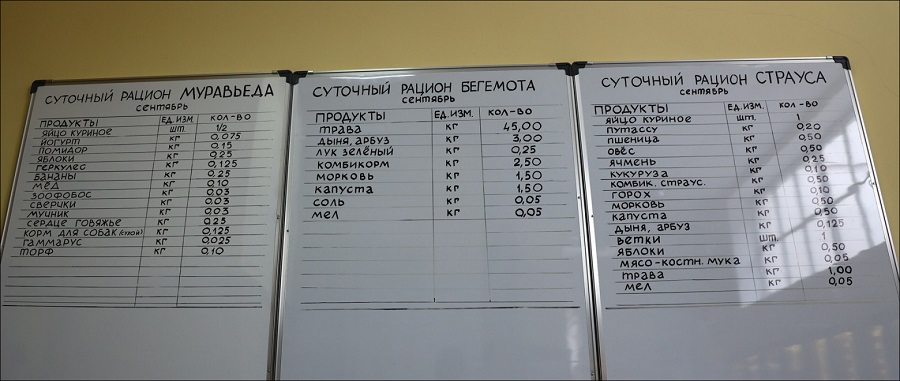 СУТОЧНЫЙ РАЦИОН МУРАВЬЕДА
СЕНТЯБРЬ
ПРОДУКТЫ ЕД.ИЗМ. КОЛ-ВО
ЯЙЦО КУРИНОЕ ШТ. 1/2
ЙОГУРТ КГ 0,075
ПОМИДОР КГ 0,15
ЯБЛОКИ КГ 0,25
ГЕРКУЛЕС КГ 0,125
БАНАНЫ КГ 0,25
МЁД КГ 0,10
ЗООФОБОС КГ 0,03
СВЕРЧКИ КГ 0,03
МУЧНИК КГ 0,03
СЕРДЦЕ ГОВЯЖЬЕ КГ 0,25
КОРМ ДЛЯ СОБАК (СУХОЙ) КГ 0,125
ГАММАРУС КГ 0,025
ТОРФ КГ 0,10
СУТОЧНЫЙ РАЦИОН БЕГЕМОТА
СЕНТЯБРЬ
ПРОДУКТЫ ЕД.ИЗМ. КОЛ-ВО
ТРАВА КГ 45,00
ДЫНЯ, АРБУЗ КГ 3,00
ЛУК ЗЕЛЁНЫЙ КГ 0,25
КОМБИКОРМ КГ 2,50
МОРКОВЬ КГ 1,50
КАПУСТА КГ 1,50
СОЛЬ КГ 0,05
МЕЛ КГ 0,05
СУТОЧНЫЙ РАЦИОН СТРАУСА
СЕНТЯБРЬ
ПРОДУКТЫ ЕД.ИЗМ. КОЛ-ВО
ЯЙЦО КУРИНОЕ ШТ. 1
ПУТАССУ КГ 0,20
ПШЕНИЦА КГ 0,50
ОВЁС КГ 0,50
ЯЧМЕНЬ КГ 0,25
КУКУРУЗА КГ 0,10
КОМБИК. СТРАУС. КГ 0,50
ГОРОХ КГ 0,10
МОРКОВЬ КГ 0,50
КАПУСТА КГ 0,50
ДЫНЯ, АРБУЗ КГ 0,125
ВЕТКИ ШТ. 1
ЯБЛОКИ КГ 0,50
МЯСО-КОСТН. МУКА КГ 0,05
ТРАВА КГ 1,00
МЕЛ КГ 0,05